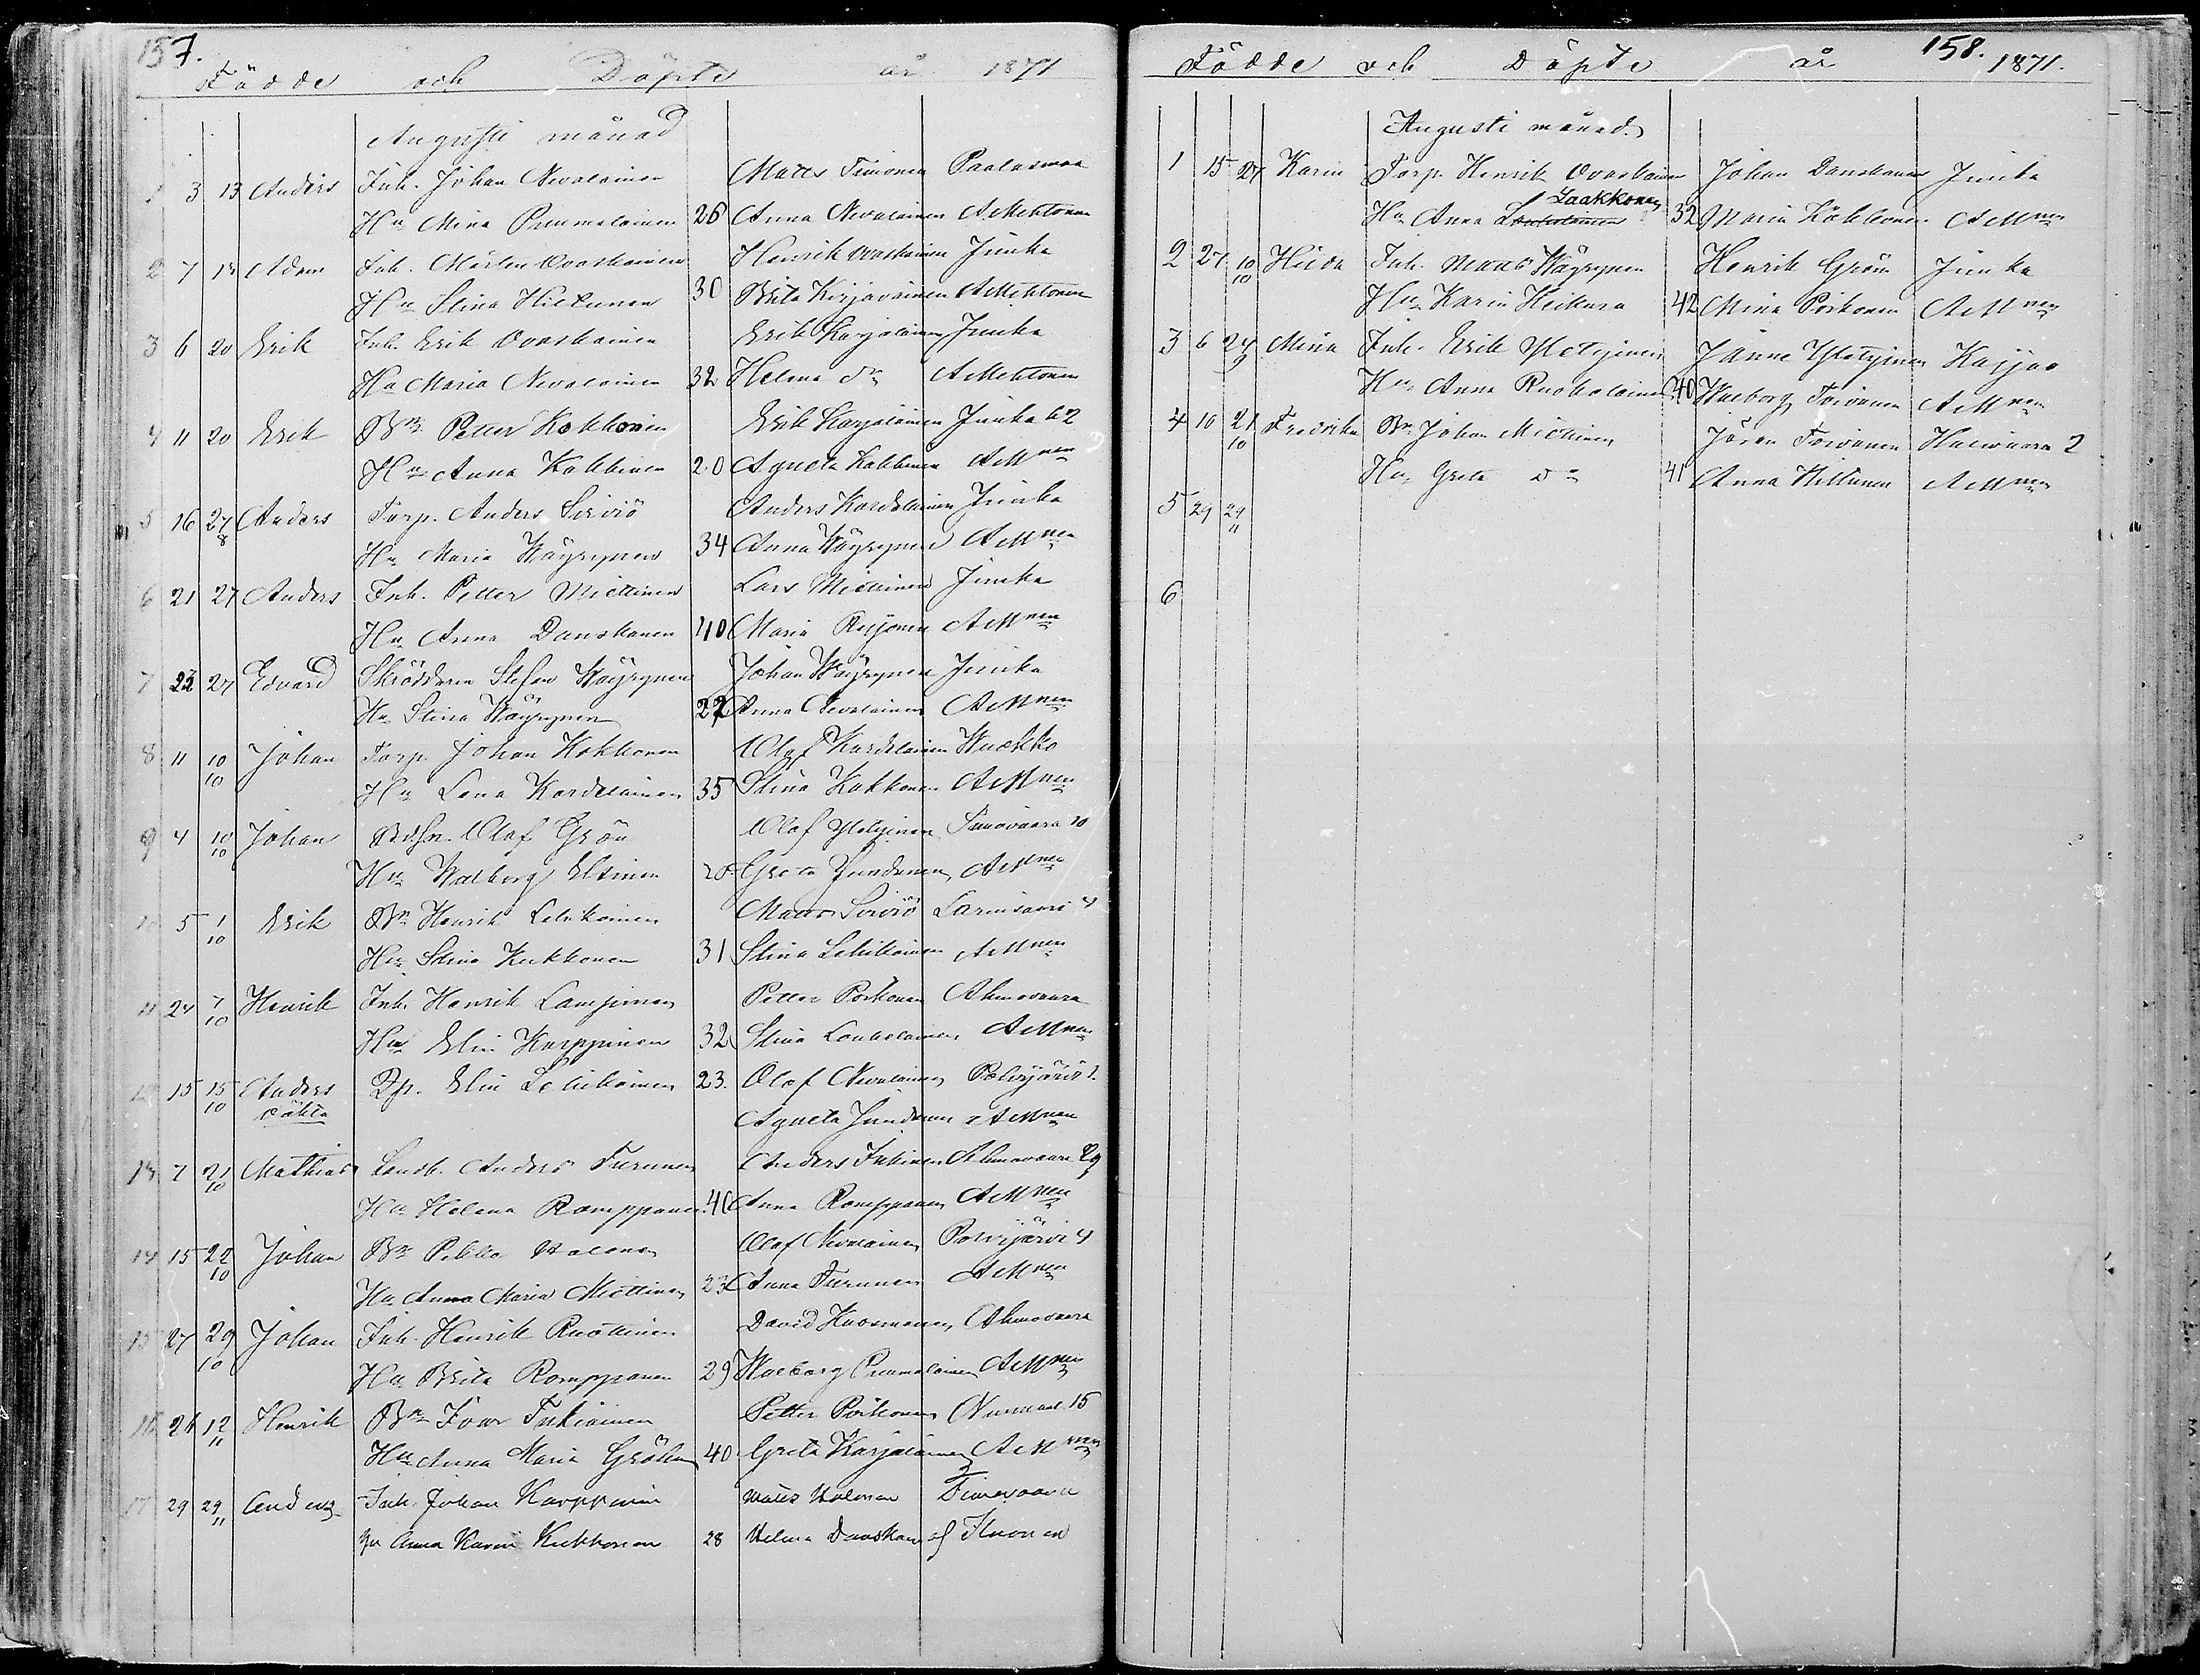 157.
Födde och Döpte år 1871
Augusti månad
1 3 13 Anders Inh. Johan Nevalainen Matts Timonen Paalasmaa
Hu Mina Pummalainen 26 Anna Nevalainen A Mehtonen
2 7 13 Adam Inh. Mårten Ovaskainen Henrik Ovaskainen Juuka
Hu Stina Hiltunen 30 Brita Kirjavainen A Mehtonen
3 6 20 Erik Inh. Erik Ovaskainen Erik Karjalainen Juuka
Hu Maria Nevalainen 32 Helena do A Mehtonen
4 11 20 Erik Bn Petter Kokkonen Erik Karjalainen Juuka 62
Hu Anna Kokkonen 20 Agneta Kokkonen A Mnen
5 16 27/8 Anders Torp. Anders Sirviö Anders Kordelainen Juuka
Hu Maria Wäyrynen 34 Anna Wäyrynen A Mnen
6 21 27 Anders Inh. Petter Miettinen Lars Miettinen Juuka
Hu Anna Danskanen 40 Maria Reijonen A Mnen
7 22 27 Edvard Skräddaren Stefan Wäyrynen Johan Wäyrynen Juuka
Hu Stina Wäyrynen 22 Anna Nevalainen A Mnen
8 11 10/10 Johan Torp. Johan Kokkonen Olof Kordelainen Wuokko
Hu Lena Kordelainen 35 Stina Kokkonen A Mnen
9 4 10/10 Johan Olof Grön Olof Yletyinen Timovaara 10
Hu Walborg Eltinen Greta A Mnen
10 5 1/10 Erik Bn Henrik Lehikoinen Matts Sirviö Larinsaari 4
Hu Stina Kukkonen 31 Stina Lehikoinen A Mnen
11 24 7/10 Henrik Inh. Henrik Petter Poikonen Ahmovaara
Hu Elin Karppinen 32 Stina A Mnen
12 15 15/10 Anders Elin Lehikoinen 23. Olof Nevalainen Polvijärvi
oäkta Agneta A Mnen
13 7 21/10 Mathias Anders Turunen Anders Ahmovaara 29
Hu Helena Romppanen 40 Anna Romppanen A Mnen
14 15 22/10 Johan Bn Pekka Halonen Olof Nevalainen Polvijärvi 4
Hu Anna Maria Miettinen 23 Anna Turunen A Mnen
15 27 29/10 Johan Inh. Henrik Ruottinen David Ahmovaara
Hu Brita Romppanen 29 Walborg Pummalainen A Mnen
16 26 12/11 Henrik Bn Petter Poikonen 15
Hu Anna Maria Gröhn 40 Greta Karjalainen A Mnen
17 29 29/11 Anders Inh. Johan Karppinen Matts Halonen Timovaara
Hu Anna Karin Kukkonen 28 Helena Danskan
158.
Födde och Döpte år 1871.
Augusti månad.
1 15 27 Karin Torp. Henrik Ovaskainen Johan Danskanen Juuka
Laakkonen
Hu Anna 32 Maria Kokkonen A Mnen
2 27 10/10 Hilda Inh. Matts Wäyrynen Henrik Grön Juuka
Hu Karin Keikura 42 Mina Poikonen A Mnen
3 6 24/9 Mina Inh. Erik Yletyinen Janne Yletyinen Kajjoo
Hu Anna Ruokolainen 40 Walborg Toivanen A Mnen
4 10 21/10 Fredrika Bn Johan Miettinen Jöran Toivanen Halivaara 2
Hu Greta do 41 Anna Hiltunen A Mnen
5 29 29/11
6